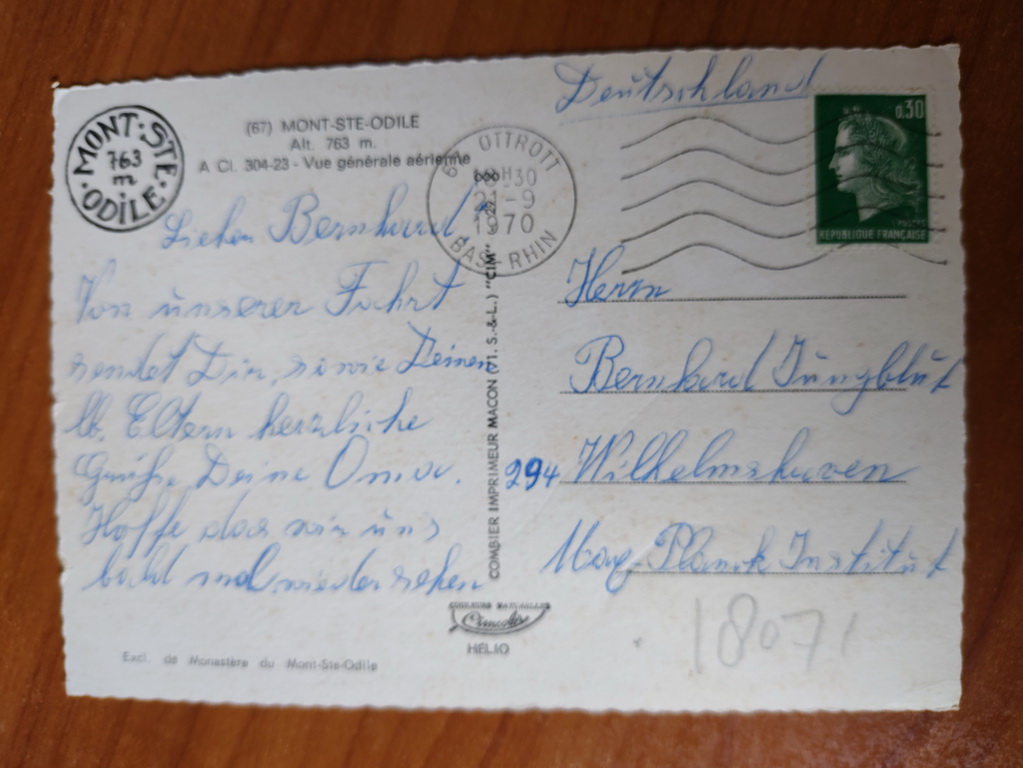 Deutschland
MONT-STE-ODILE
763
m
(67) MONT-STE-ODILE
Alt. 763 m.
A Cl. 304-23 - Vue générale aérienne
67 OTTROTT
H 30
-9
1970
BAS-RHIN
0.30
REPUBLIQUE FRANÇAISE
Lieber Bernhard,
Von unserer Fahrt
sendet Dir, sowie Deinen
lb. Eltern herzliche
Grüße Deine Oma.
Hoffe das wir uns
bald mal wieder sehen
COMBIER IMPRIMEUR MACON (71. S.-&-L.) "CIM"
Herrn
Bernhard Jungblut
294 Wilhelmshaven
Max-Planck Institut
18071
COULEURS NATURELLES
Cimcolor
HELIO
Excl. de Monastère du Mont-Ste-Odile